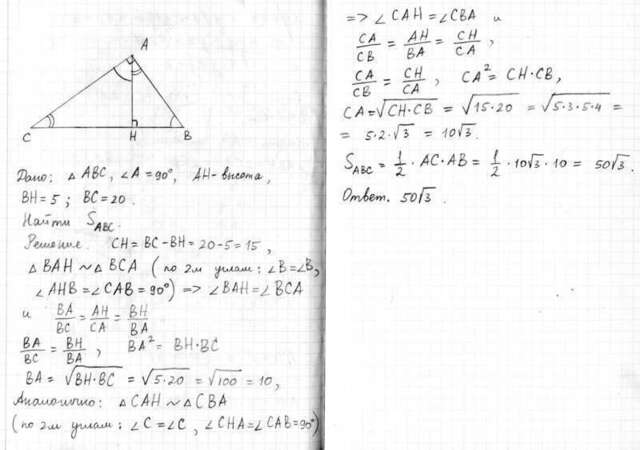 A
C
H
B
Дано: △ABC, ∠A=90°, AH-высота,
BH=5; BC=20.
Найти S_ABC.
Решение. CH=BC-BH=20-5=15,
△BAH ~ △BCA (по 2м углам: ∠B=∠B,
∠AHB=∠CAB=90°) => ∠BAH=∠BCA
и BA/BC = AH/CA = BH/BA
BA/BC = BH/BA, BA² = BH·BC
BA = √BH·BC = √5·20 = √100 = 10,
Аналогично: △CAH ~ △CBA
(по 2м углам: ∠C=∠C, ∠CHA=∠CAB=90°)
=> ∠CAH=∠CBA и
CA/CB = AH/BA = CH/CA,
CA/CB = CH/CA, CA² = CH·CB,
CA=√CH·CB = √15·20 = √5·3·5·4 =
= 5·2·√3 = 10√3.
S_ABC = 1/2 · AC·AB = 1/2 · 10√3 · 10 = 50√3.
Ответ. 50√3.